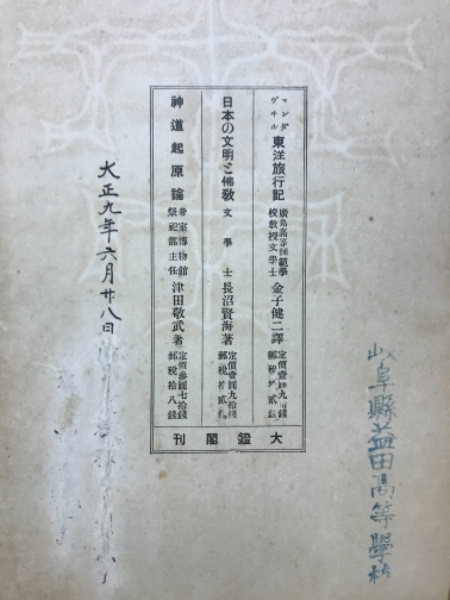 岐阜縣益田高等學校
マンダヴィル 東洋旅行記 廣島高等師範學校教授文學士 金子健二譯 定價壹圓九錢 郵税拾貳錢
日本の文明と佛敎 文學士 長沼賢海著 定價壹圓九拾錢 郵税拾貳錢
神道起原論 帝室博物館祭祀部主任 津田敬武著 定價參圓七拾錢 郵税拾八錢
大鐙閣刊
大正九年六月廿八日